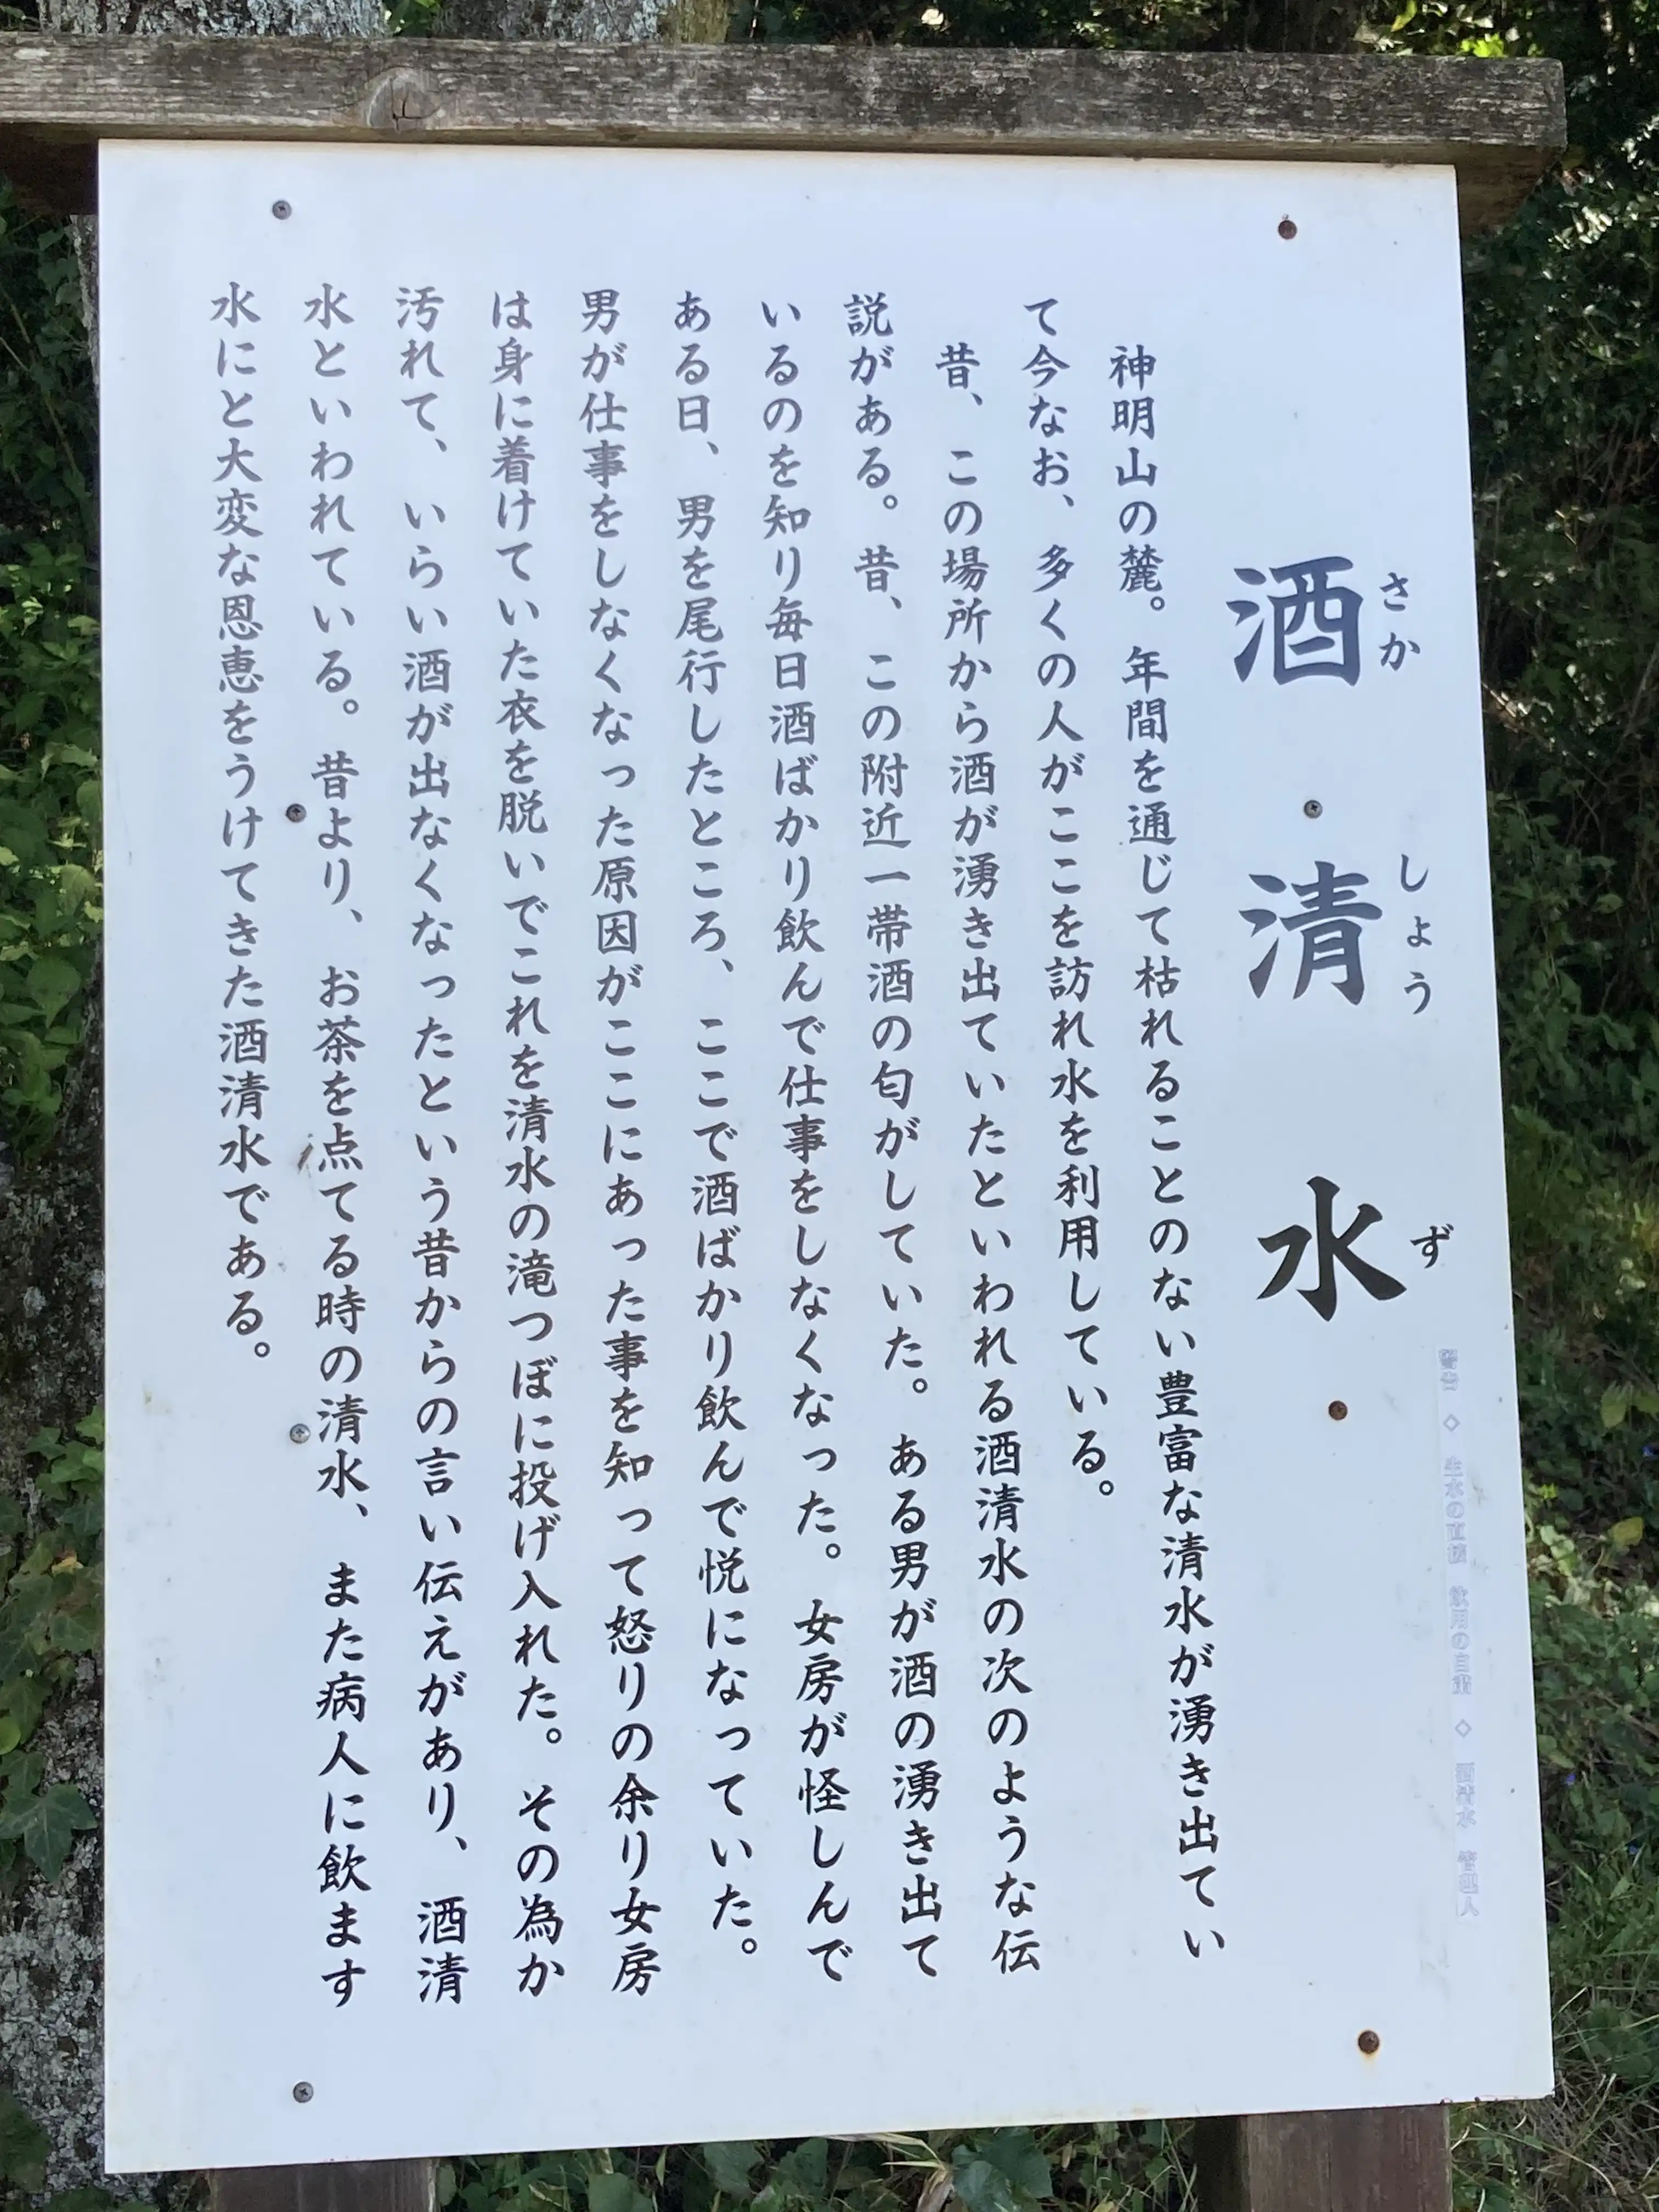 酒清水
さか しょう ず
警告 ◇ 生水の直接 飲用の自粛 ◇ 酒清水 管理人
神明山の麓。年間を通じて枯れることのない豊富な清水が湧き出てい
て今なお、多くの人がここを訪れ水を利用している。
昔、この場所から酒が湧き出ていたといわれる酒清水の次のような伝
説がある。昔、この附近一帯酒の匂がしていた。ある男が酒の湧き出て
いるのを知り毎日酒ばかり飲んで仕事をしなくなった。女房が怪しんで
ある日、男を尾行したところ、ここで酒ばかり飲んで悦になっていた。
男が仕事をしなくなった原因がここにあった事を知って怒りの余り女房
は身に着けていた衣を脱いでこれを清水の滝つぼに投げ入れた。その為か
汚れて、いらい酒が出なくなったという昔からの言い伝えがあり、酒清
水といわれている。昔より、お茶を点てる時の清水、また病人に飲ます
水にと大変な恩恵をうけてきた酒清水である。